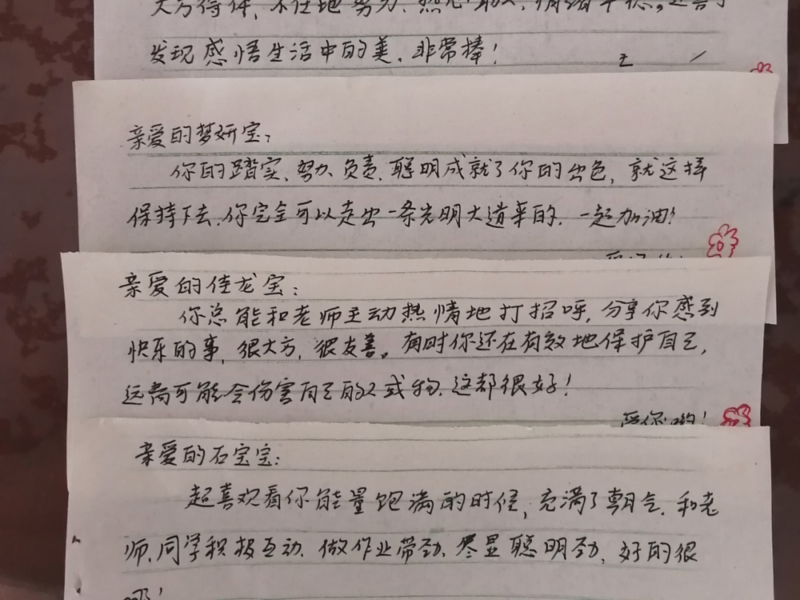 大方得体,不住地努力、
发现感悟生活中的美,非常棒!
亲爱的梦妍宝:
你的踏实、努力、负责、聪明成就了你的出色,就这样
保持下去,你完全可以走出一条光明大道来的,一起加油!
亲爱的佳龙宝:
你总能和老师主动热情地打招呼,分享你感到
快乐的事,很大方,很友善。有时你还在有效地保护自己,
远离可能会伤害自己的人或物,这都很好!
爱你哟!
亲爱的石宝宝:
超喜欢看你能量饱满的时候,充满了朝气,和老
师、同学积极互动,做作业带劲,尽显聪明劲,好的很